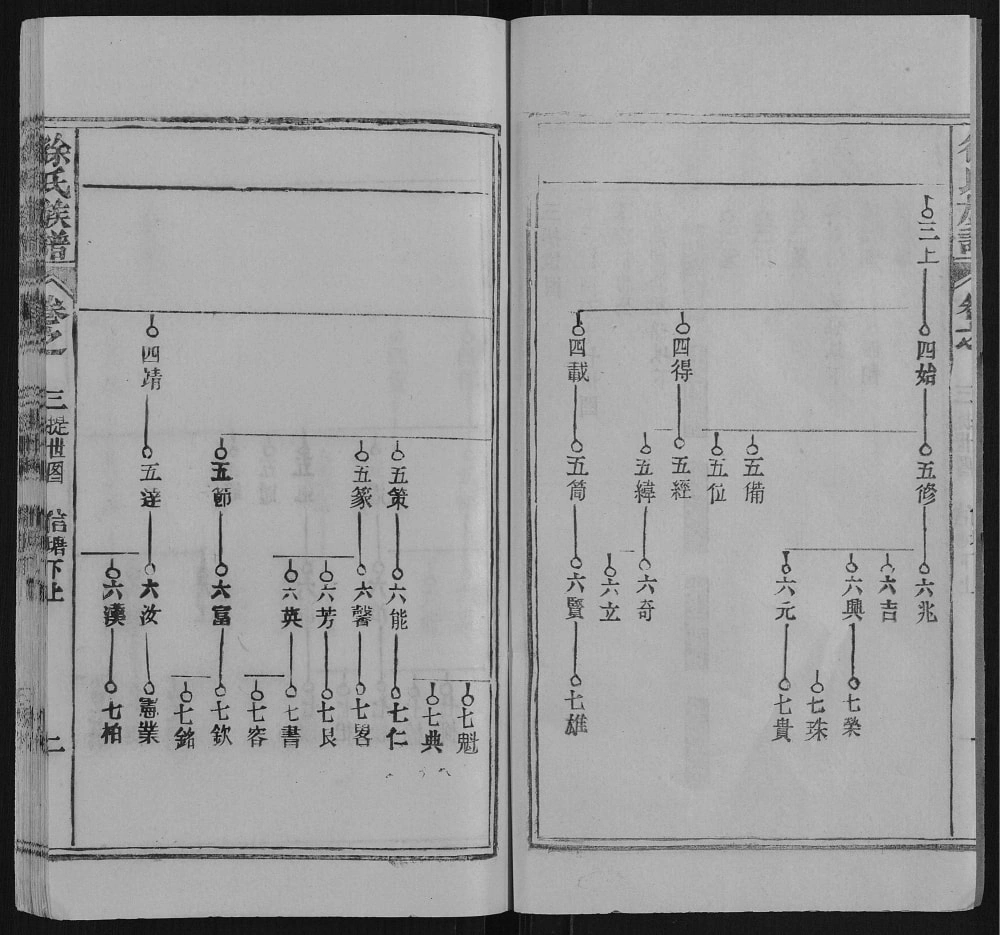 三上
四始
五修
六兆
六吉
六興
七榮
七珠
六元
七貴
五備
五位
四得
五經
五緯
六奇
六立
四載
五筒
六賢
七雄
七魁
七典
五策
六能
七仁
五篆
六馨
七畧
六芳
七良
六英
七書
七容
五節
六富
七欽
七銘
四靖
五達
六汝
憲業
六漢
七柏
徐氏族譜
卷之
三提世图
信塘下上
二